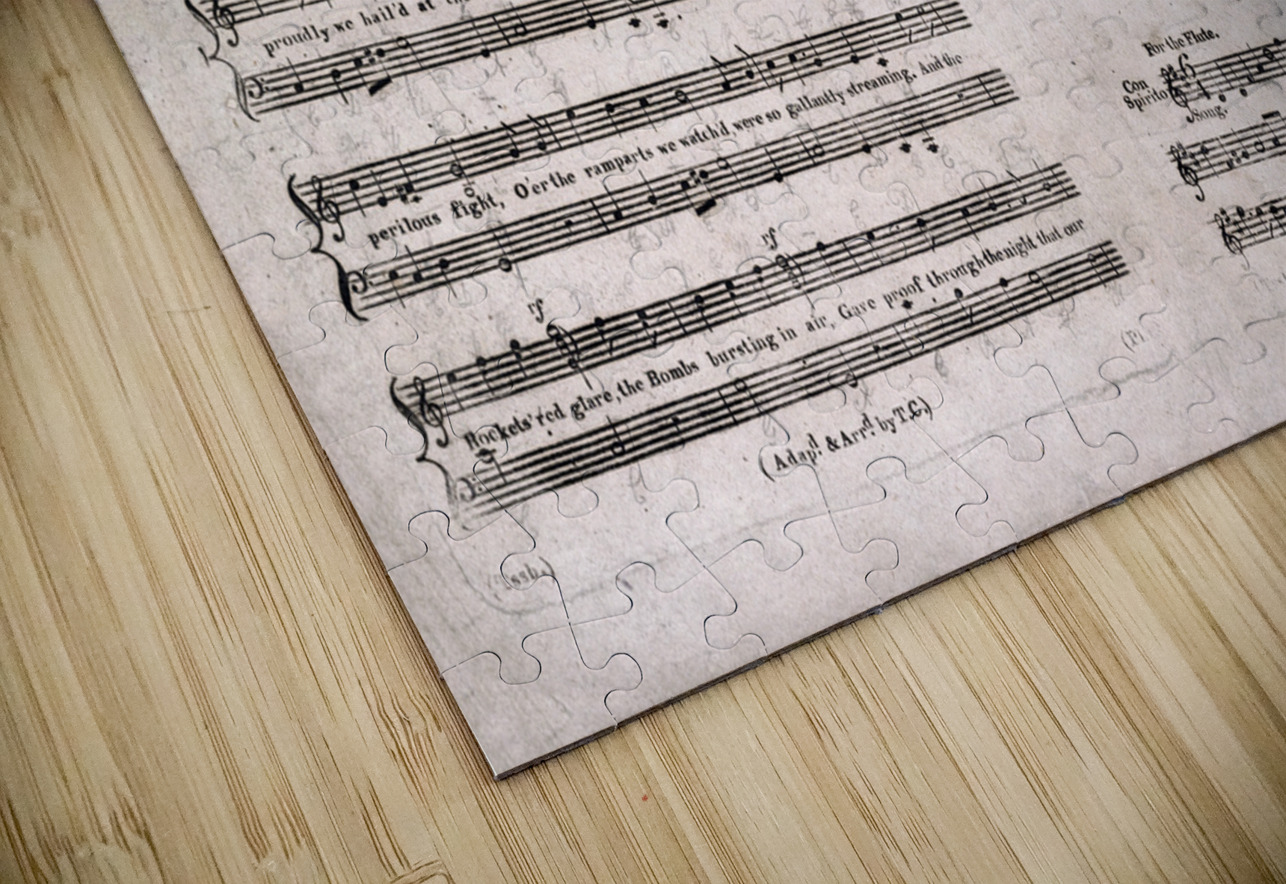 proudly we hail'd at
perilous fight, O'er the ramparts we watch'd were so gallantly streaming, And the
rf
rf
Rockets' red glare, the Bombs bursting in air, Gave proof through the night that our
(Adapd. & Arrd. by T.C.)
For the Flute.
Con
Spirito
Song.